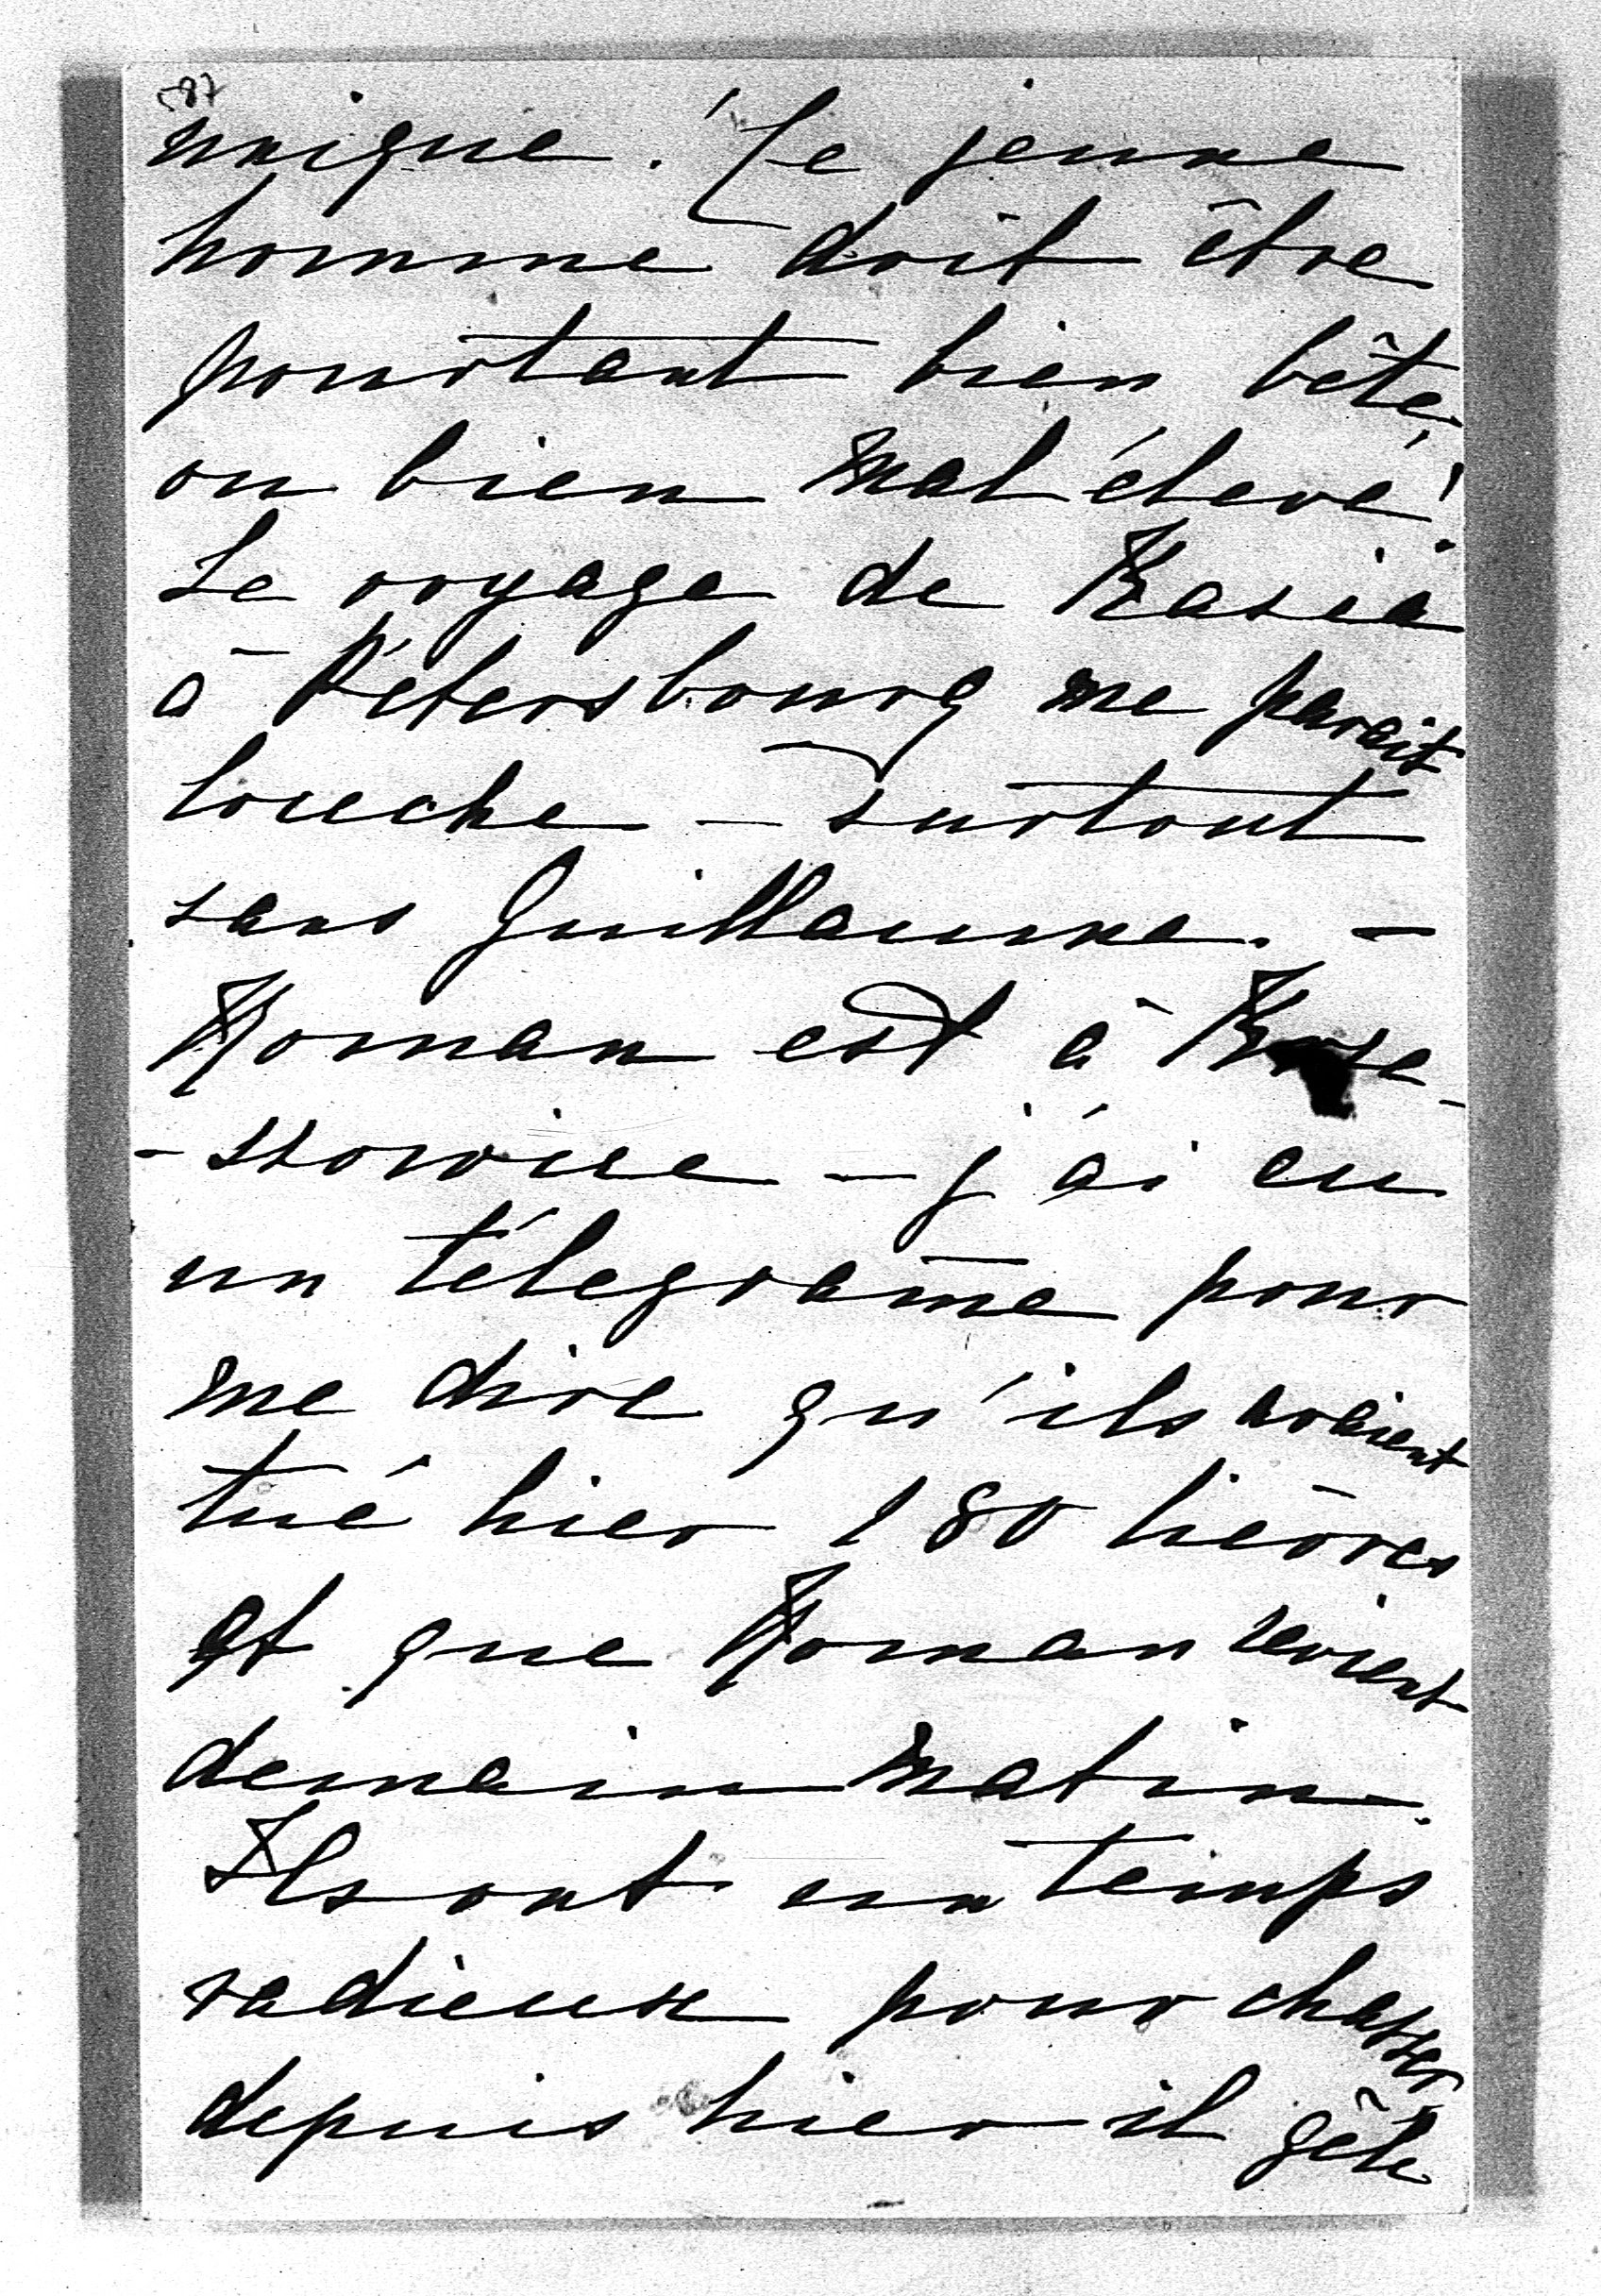 587
unique. Ce jeune
homme doit être
pourtant bien bête,
ou bien mal élevé!
Le voyage de Kasia
à Pétersbourg me parait
louche – surtout
sans Guillaume. –
Roman est à
j'ai eu
un télegram̄e pour
me dire qu'ils avaient
tué hier 180 lièvres
et que Roman revient
demain matin.
Ils ont un temps
radieux pour chasser
depuis hier il gèle